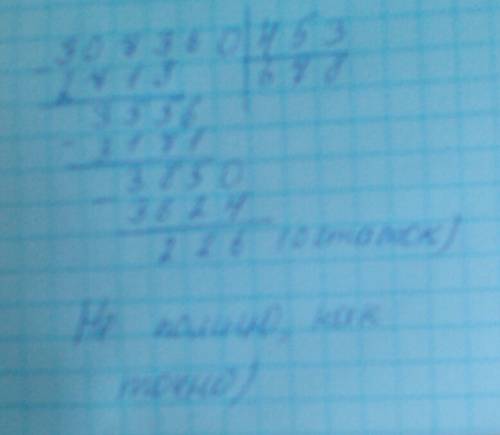 307360 453
- 2718 678
3556
- 3171
3850
- 3624
226 (остаток)
Не помню, как
точно)